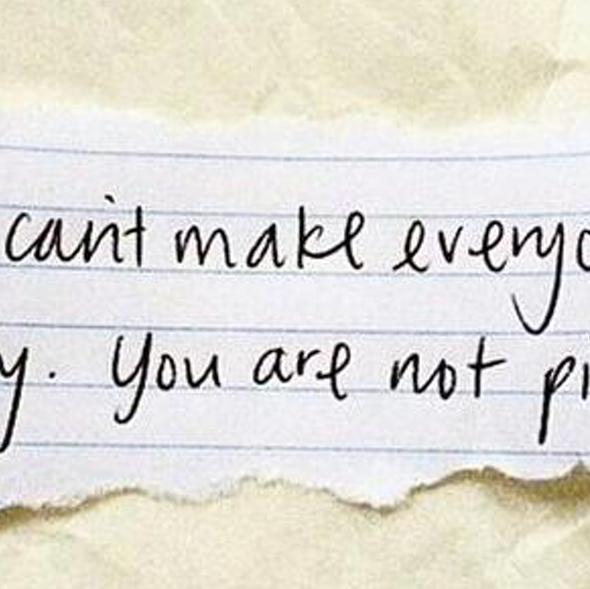 can't make everyo
y. you are not pr